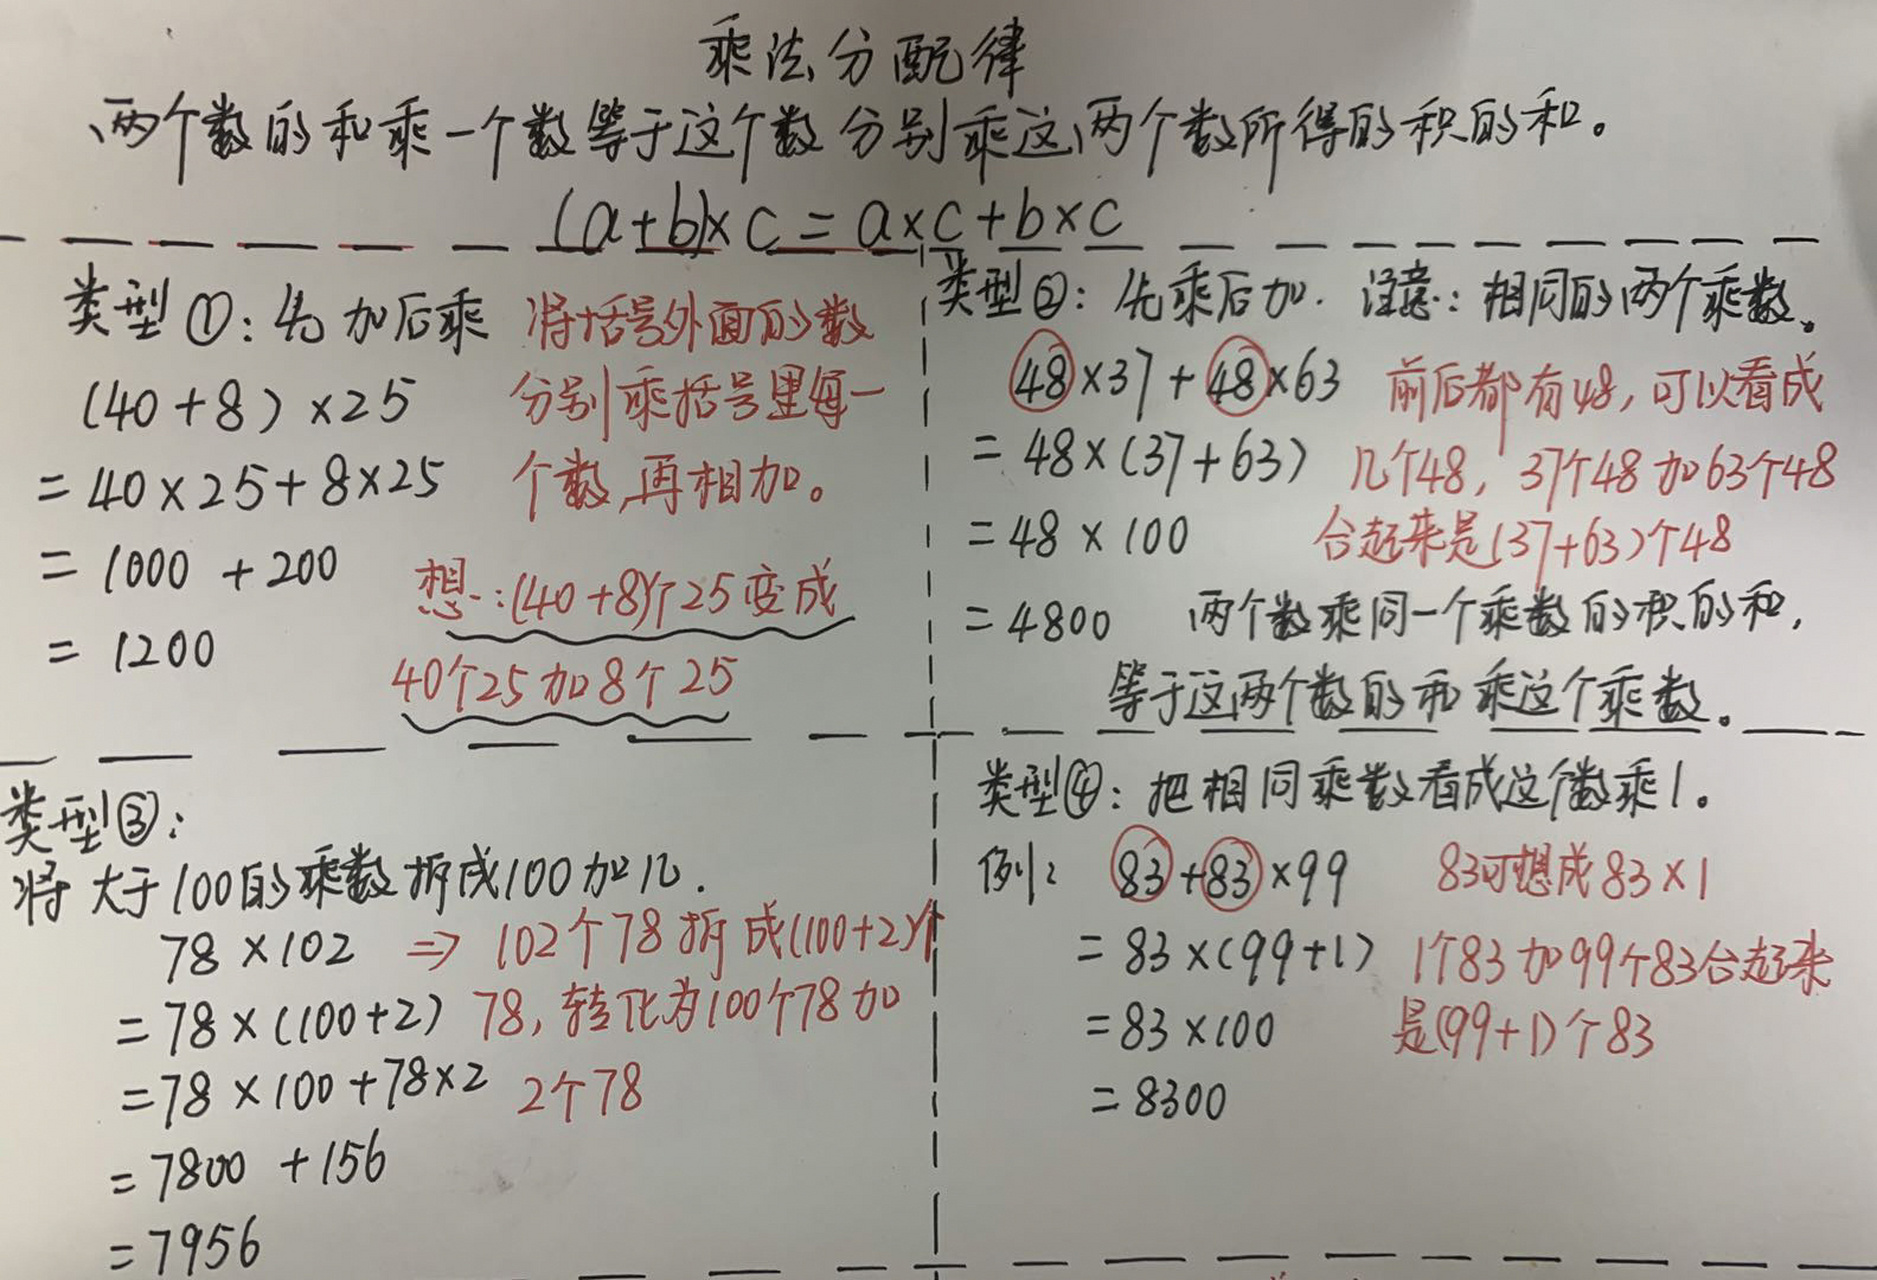 乘法分配律
两个数的和乘一个数等于这个数分别乘这两个数所得的积的和。
(a+b)×c=a×c+b×c
类型①：先加后乘 将括号外面的数
(40+8)×25 分别乘括号里每一
=40×25+8×25 个数,再相加。
=1000+200
=1200
想：(40+8)个25变成
40个25加8个25
类型②：先乘后加. 注意：相同的两个乘数。
48×37+48×63 前后都有48,可以看成
=48×(37+63) 几个48, 37个48加63个48
=48×100 合起来是(37+63)个48
=4800 两个数乘同一个乘数的积的和,
等于这两个数的和乘这个乘数。
类型③：
将大于100的乘数拆成100加几.
78×102 ⇒ 102个78拆成(100+2)个
=78×(100+2) 78,转化为100个78加
=78×100+78×2 2个78
=7800+156
=7956
类型④：把相同乘数看成这个数乘1。
例: 83+83×99 83可想成83×1
=83×(99+1) 1个83加99个83合起来
=83×100 是(99+1)个83
=8300